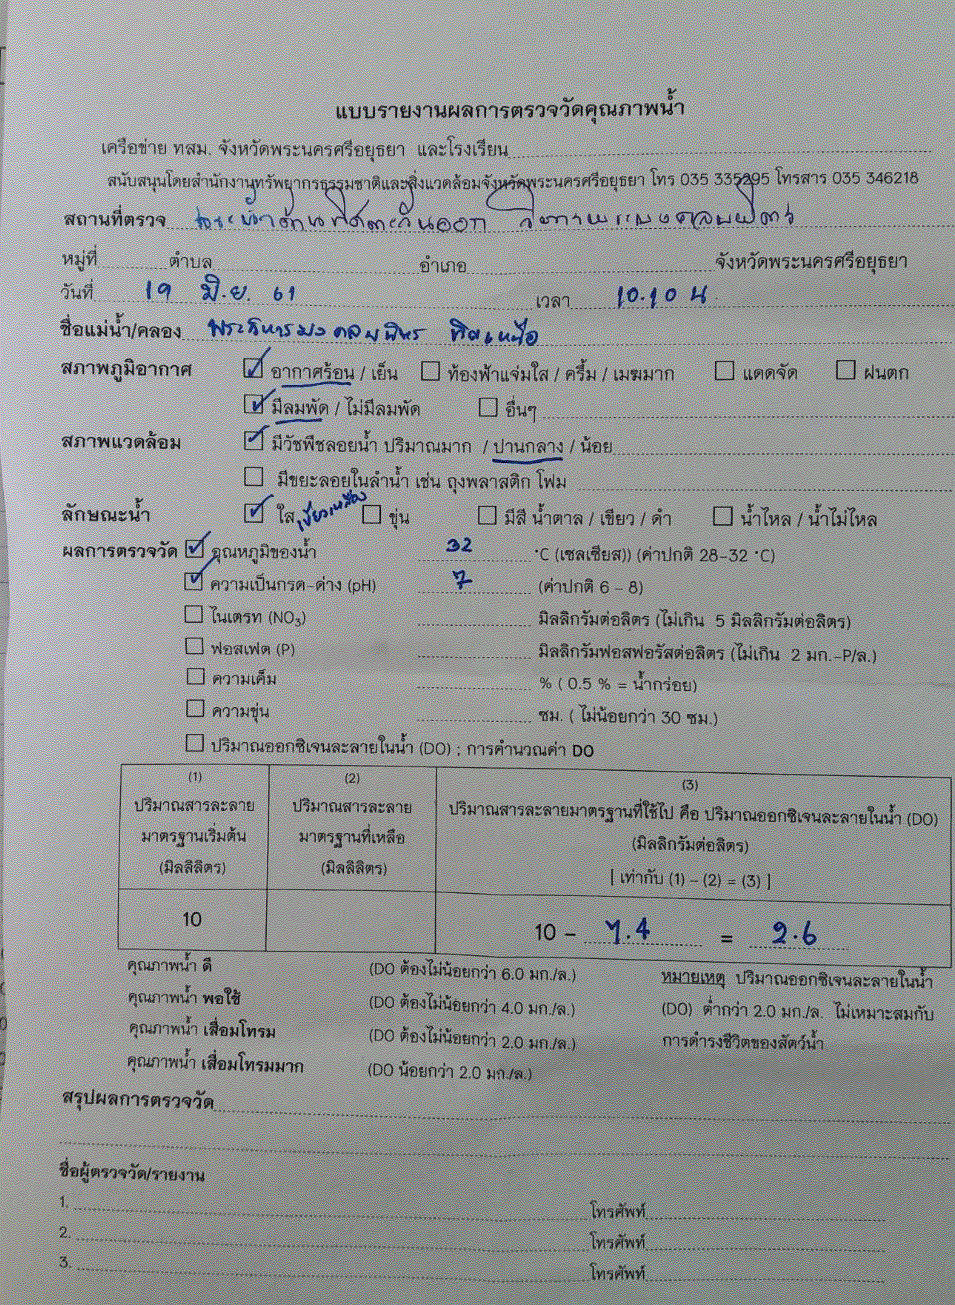 แบบรายงานผลการตรวจวัดคุณภาพน้ำ
เครือข่าย ทสม. จังหวัดพระนครศรีอยุธยา และโรงเรียน
สนับสนุนโดยสำนักงานทรัพยากรธรรมชาติและสิ่งแวดล้อมจังหวัดพระนครศรีอยุธยา โทร 035 335295 โทรสาร 035 346218
สถานที่ตรวจ สระน้ำด้านทิศตะวันออก วิหารพระมงคลบพิตร
หมู่ที่ ตำบล อำเภอ จังหวัดพระนครศรีอยุธยา
วันที่ 19 มิ.ย. 61 เวลา 10.10 น.
ชื่อแม่น้ำ/คลอง พระวิหารมงคลบพิตร ทิศเหนือ
สภาพภูมิอากาศ อากาศร้อน / เย็น ท้องฟ้าแจ่มใส / ครึ้ม / เมฆมาก แดดจัด ฝนตก
มีลมพัด / ไม่มีลมพัด อื่นๆ
สภาพแวดล้อม มีวัชพืชลอยน้ำ ปริมาณมาก / ปานกลาง / น้อย
มีขยะลอยในลำน้ำ เช่น ถุงพลาสติก โฟม
ลักษณะน้ำ ใส เขียวเหลือง ขุ่น มีสี น้ำตาล / เขียว / ดำ น้ำไหล / น้ำไม่ไหล
ผลการตรวจวัด อุณหภูมิของน้ำ 32 °C (เซลเซียส)) (ค่าปกติ 28-32 °C)
ความเป็นกรด-ด่าง (pH) 7 (ค่าปกติ 6 – 8)
ไนเตรท (NO₃) มิลลิกรัมต่อลิตร (ไม่เกิน 5 มิลลิกรัมต่อลิตร)
ฟอสเฟต (P) มิลลิกรัมฟอสฟอรัสต่อลิตร (ไม่เกิน 2 มก.-P/ล.)
ความเค็ม % ( 0.5 % = น้ำกร่อย)
ความขุ่น ซม. ( ไม่น้อยกว่า 30 ซม.)
ปริมาณออกซิเจนละลายในน้ำ (DO) ; การคำนวณค่า DO
(1) (2) (3)
ปริมาณสารละลาย ปริมาณสารละลาย ปริมาณสารละลายมาตรฐานที่ใช้ไป คือ ปริมาณออกซิเจนละลายในน้ำ (DO)
มาตรฐานเริ่มต้น มาตรฐานที่เหลือ (มิลลิกรัมต่อลิตร)
(มิลลิลิตร) (มิลลิลิตร) [ เท่ากับ (1) – (2) = (3) ]
10 10 – 7.4 = 2.6
คุณภาพน้ำ ดี (DO ต้องไม่น้อยกว่า 6.0 มก./ล.) หมายเหตุ ปริมาณออกซิเจนละลายในน้ำ
คุณภาพน้ำ พอใช้ (DO ต้องไม่น้อยกว่า 4.0 มก./ล.) (DO) ต่ำกว่า 2.0 มก./ล. ไม่เหมาะสมกับ
คุณภาพน้ำ เสื่อมโทรม (DO ต้องไม่น้อยกว่า 2.0 มก./ล.) การดำรงชีวิตของสัตว์น้ำ
คุณภาพน้ำ เสื่อมโทรมมาก (DO น้อยกว่า 2.0 มก./ล.)
สรุปผลการตรวจวัด
ชื่อผู้ตรวจวัด/รายงาน
1. โทรศัพท์
2. โทรศัพท์
3. โทรศัพท์